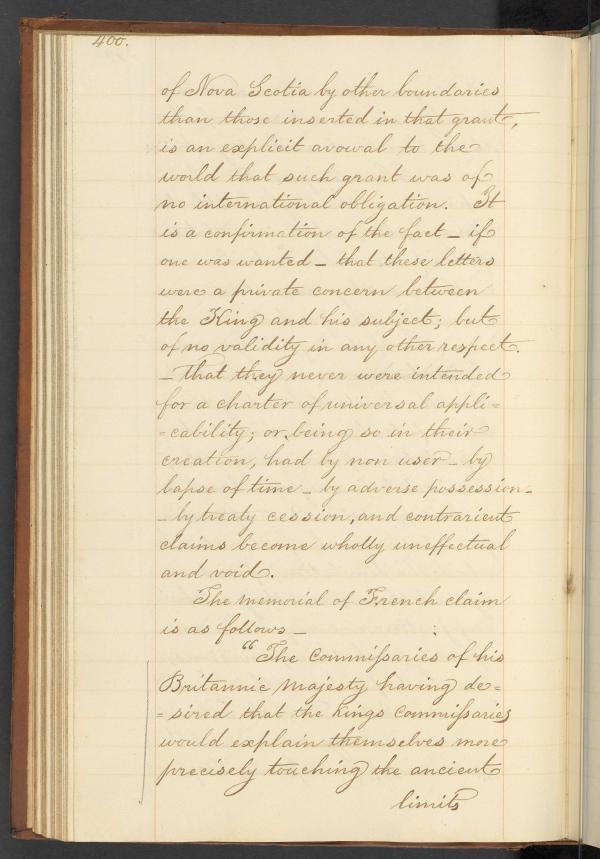 400.
of Nova Scotia by other boundaries
than those inserted in that grant,
is an explicit avowal to the
world that such grant was of
no international obligation. It
is a confirmation of the fact – if
one was wanted – that these letters
were a private concern between
the King and his subject; but
of no validity in any other respect.
– That they never were intended
for a charter of universal appli=
=cability; or, being so in their
creation, had by non user – by
lapse of time – by adverse possession –
– by treaty cession, and contrarient
claims become wholly uneffectual
and void.
The memorial of French claim
is as follows –
“The Commissaries of his
Britannic Majesty having de=
=sired that the Kings Commissaries
would explain themselves more
precisely touching the ancient
limits